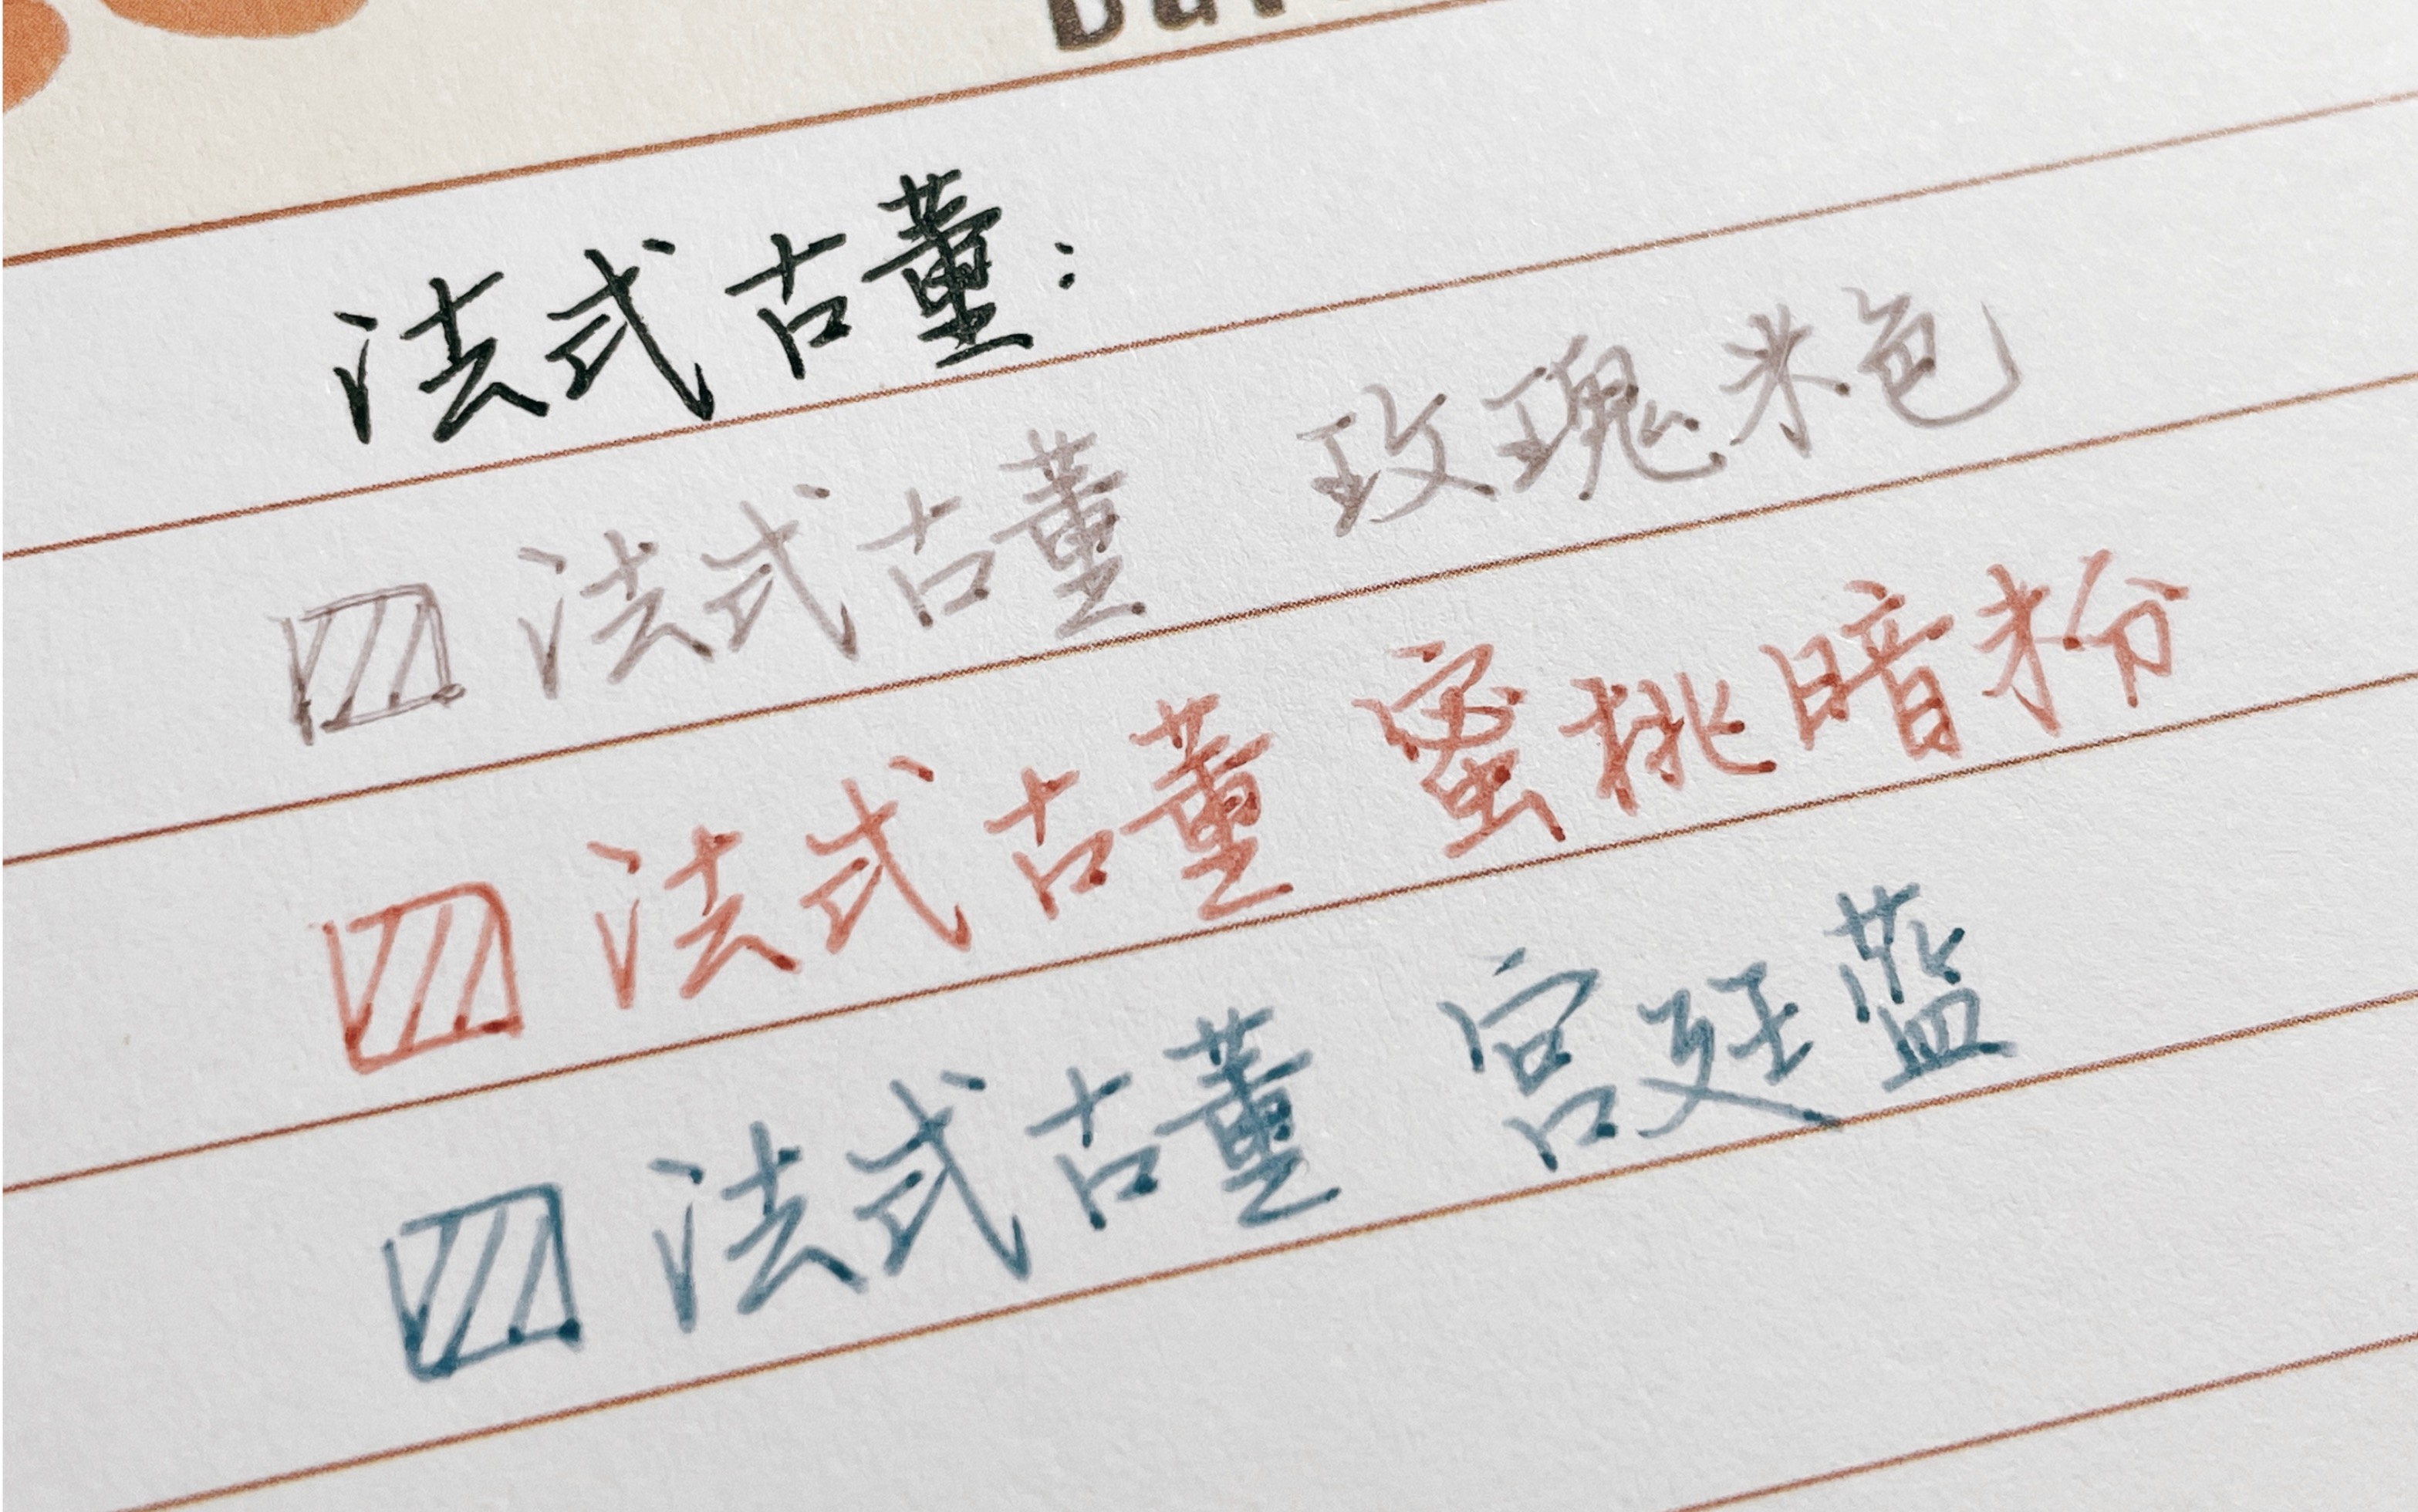 法式古董：
法式古董 玫瑰米色
法式古董 蜜桃暗粉
法式古董 宫廷蓝